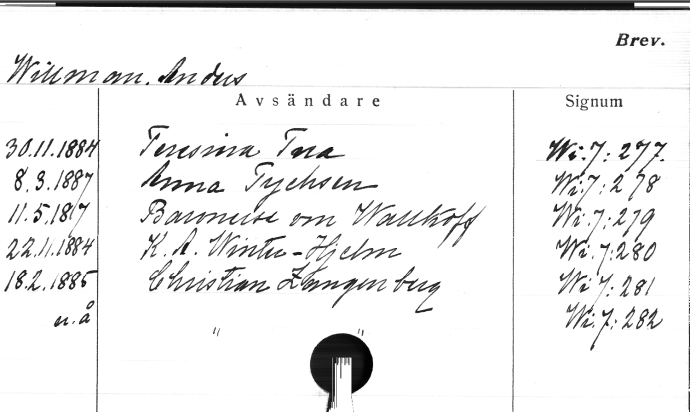 Brev.
Willman, Anders
Avsändare Signum
30.11.1884 Teresina Tua Wi.7:277.
8.3.1887 Anna Tychsen Wi.7:278
11.5.1817 Baronesse von Wallhoff Wi.7:279
22.11.1884 K. A. Winter-Hjelm Wi.7:280
18.2.1885 Christian Zangenberg Wi.7:281
u.å " " Wi.7:282